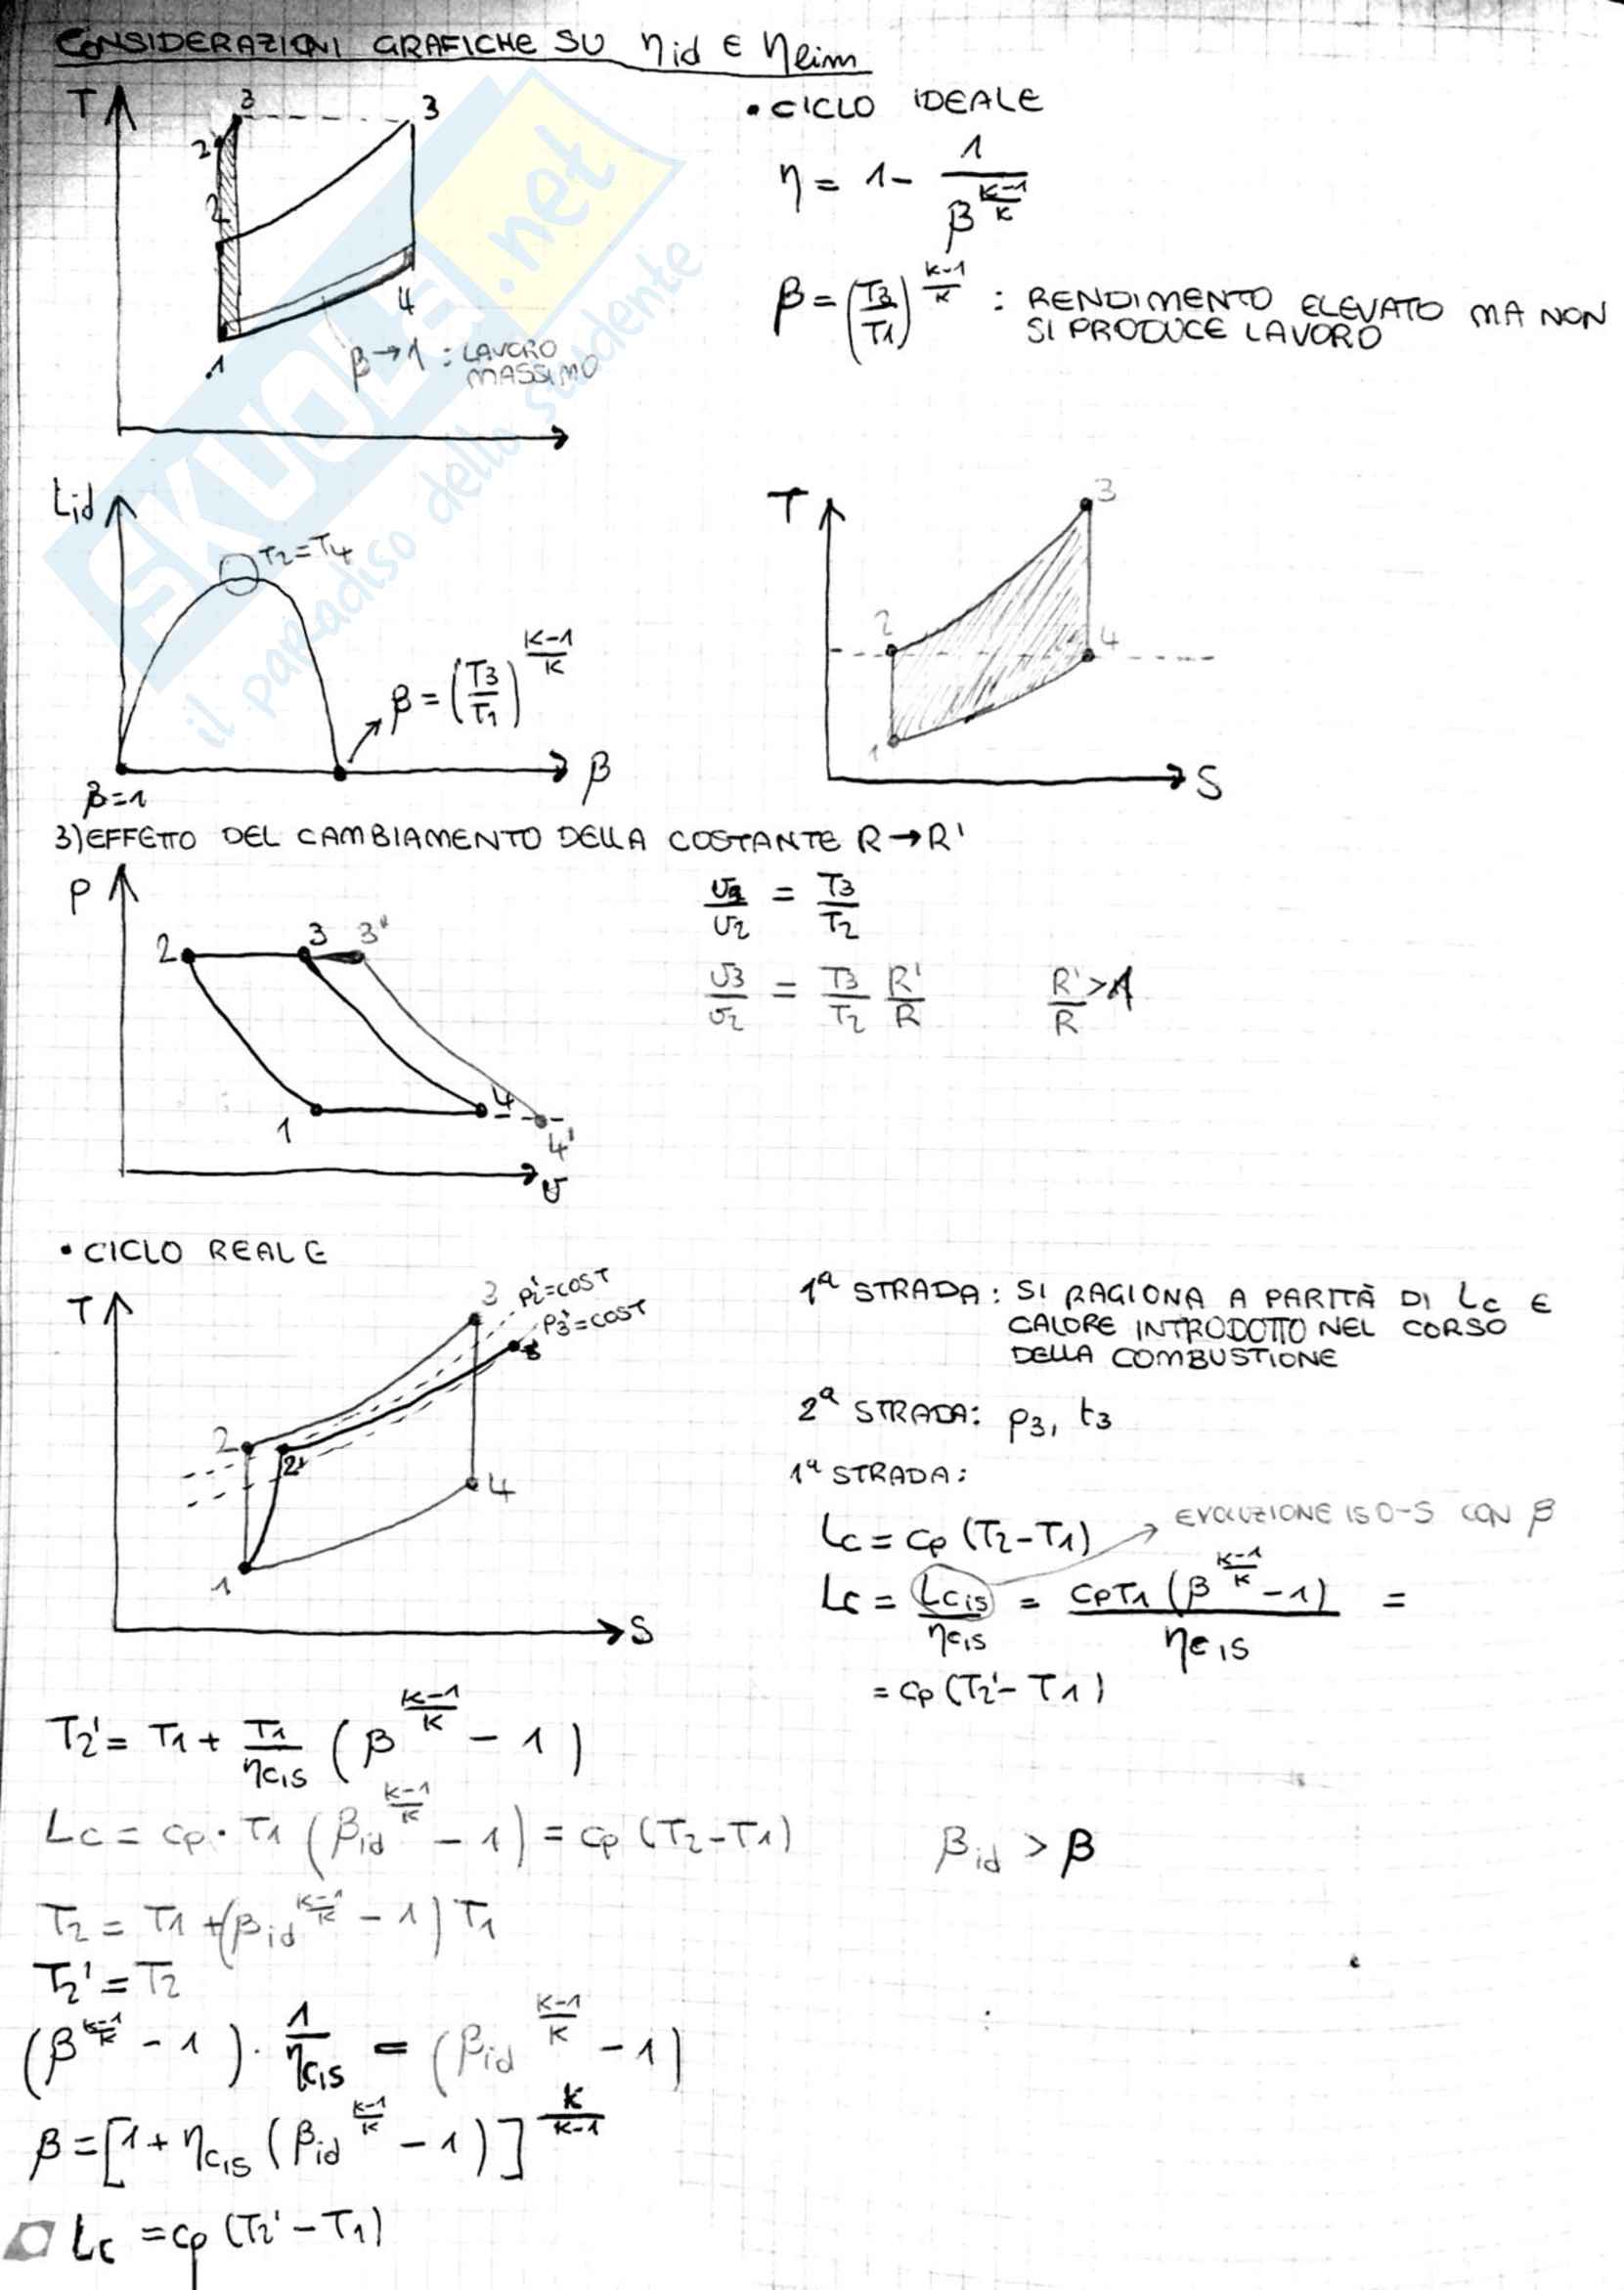 CONSIDERAZIONI GRAFICHE SU ηid E ηlim
T
3
3
2'
2
1
4
β→1 : LAVORO
MASSIMO
• CICLO IDEALE
η = 1 - 1 / β^((K-1)/K)
β = (T3/T1)^((K-1)/K) : RENDIMENTO ELEVATO MA NON
SI PRODUCE LAVORO
Lid
T2=T4
β = (T3/T1)^((K-1)/K)
β
β=1
T
3
2
4
1
S
3) EFFETTO DEL CAMBIAMENTO DELLA COSTANTE R→R'
P
2
3
3'
1
4
4'
v
v3/v2 = T3/T2
v3/v2 = T3/T2 R'/R
R'/R >1
• CICLO REALE
T
3
p2'=COST
p3'=COST
2
2'
4
1
S
1ª STRADA: SI RAGIONA A PARITÀ DI Lc E
CALORE INTRODOTTO NEL CORSO
DELLA COMBUSTIONE
2ª STRADA: p3, t3
1ª STRADA:
Lc = cp (T2-T1)
EVOLUZIONE ISO-S CON β
Lc = Lcis/ηcis = cpT1 (β^((K-1)/K) -1) / ηcis =
= cp (T2'- T1)
T2'= T1 + T1/ηcis (β^((K-1)/K) - 1)
Lc = cp · T1 (βid^((K-1)/K) - 1) = cp (T2-T1)
βid > β
T2 = T1 + (βid^((K-1)/K) - 1) T1
T2' = T2
(β^((K-1)/K) - 1) · 1/ηcis = (βid^((K-1)/K) - 1)
β = [1 + ηcis (βid^((K-1)/K) - 1)]^(K/(K-1))
Lc = cp (T2' - T1)
SKUOLA.net
il paradiso dello studente